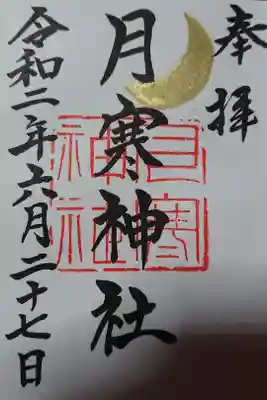 奉拝
月寒神社
月寒
神社
令和二年六月二十七日